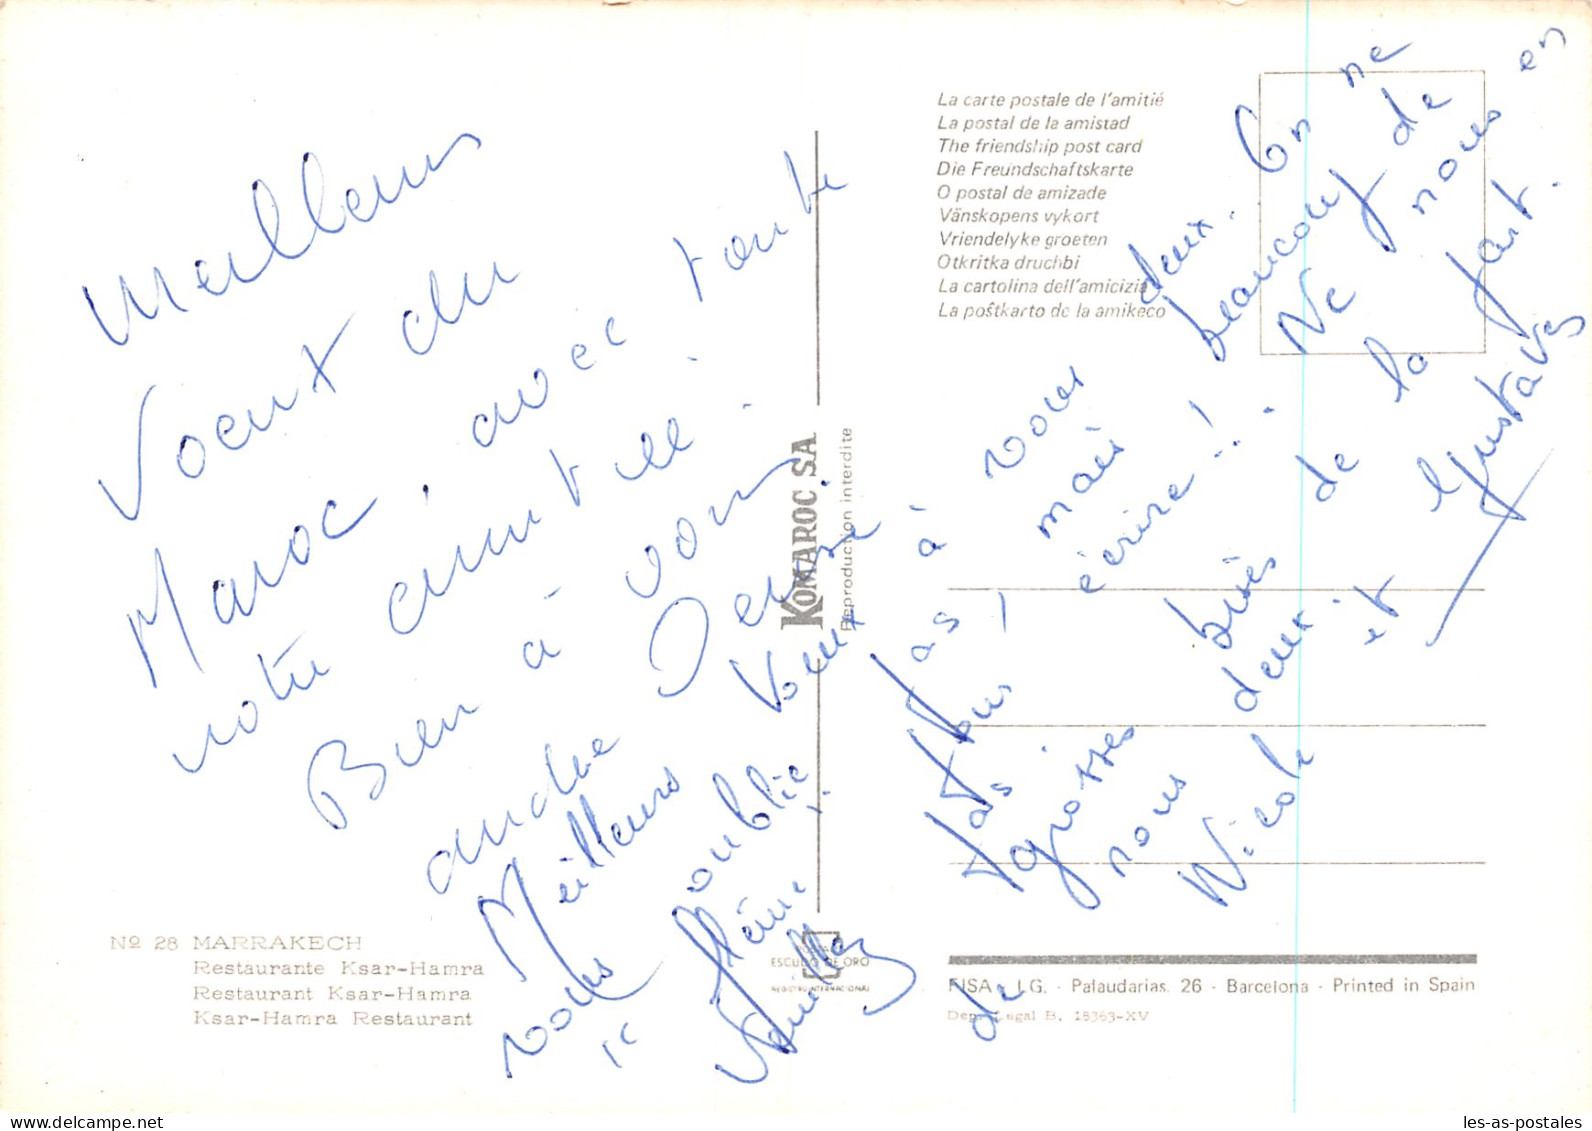 Meilleurs
Voeux du
Maroc, avec toute
notre amitié.
Bien à vous
Denise
andrée
Meilleurs Voeux à vous deux. On ne
vous oublie pas, mais beaucoup de
flème pour écrire!! Ne nous en
veuillez pas.
grosses bises de la part
de nous deux.
Nicole et Gustave
La carte postale de l'amitié
La postal de la amistad
The friendship post card
Die Freundschaftskarte
O postal de amizade
Vänskopens vykort
Vriendelyke groeten
Otkritka druchbi
La cartolina dell'amicizia
La poŝtkarto de la amikeco
KOMAROC SA
Reproduction interdite
Nº 28 MARRAKECH
Restaurante Ksar-Hamra
Restaurant Ksar-Hamra
Ksar-Hamra Restaurant
ESCUDO DE ORO
REGISTRO INTERNACIONAL
FISA - I.G. - Palaudarias, 26 - Barcelona - Printed in Spain
Dep. Legal B. 18363-XV
les-as-postales.com